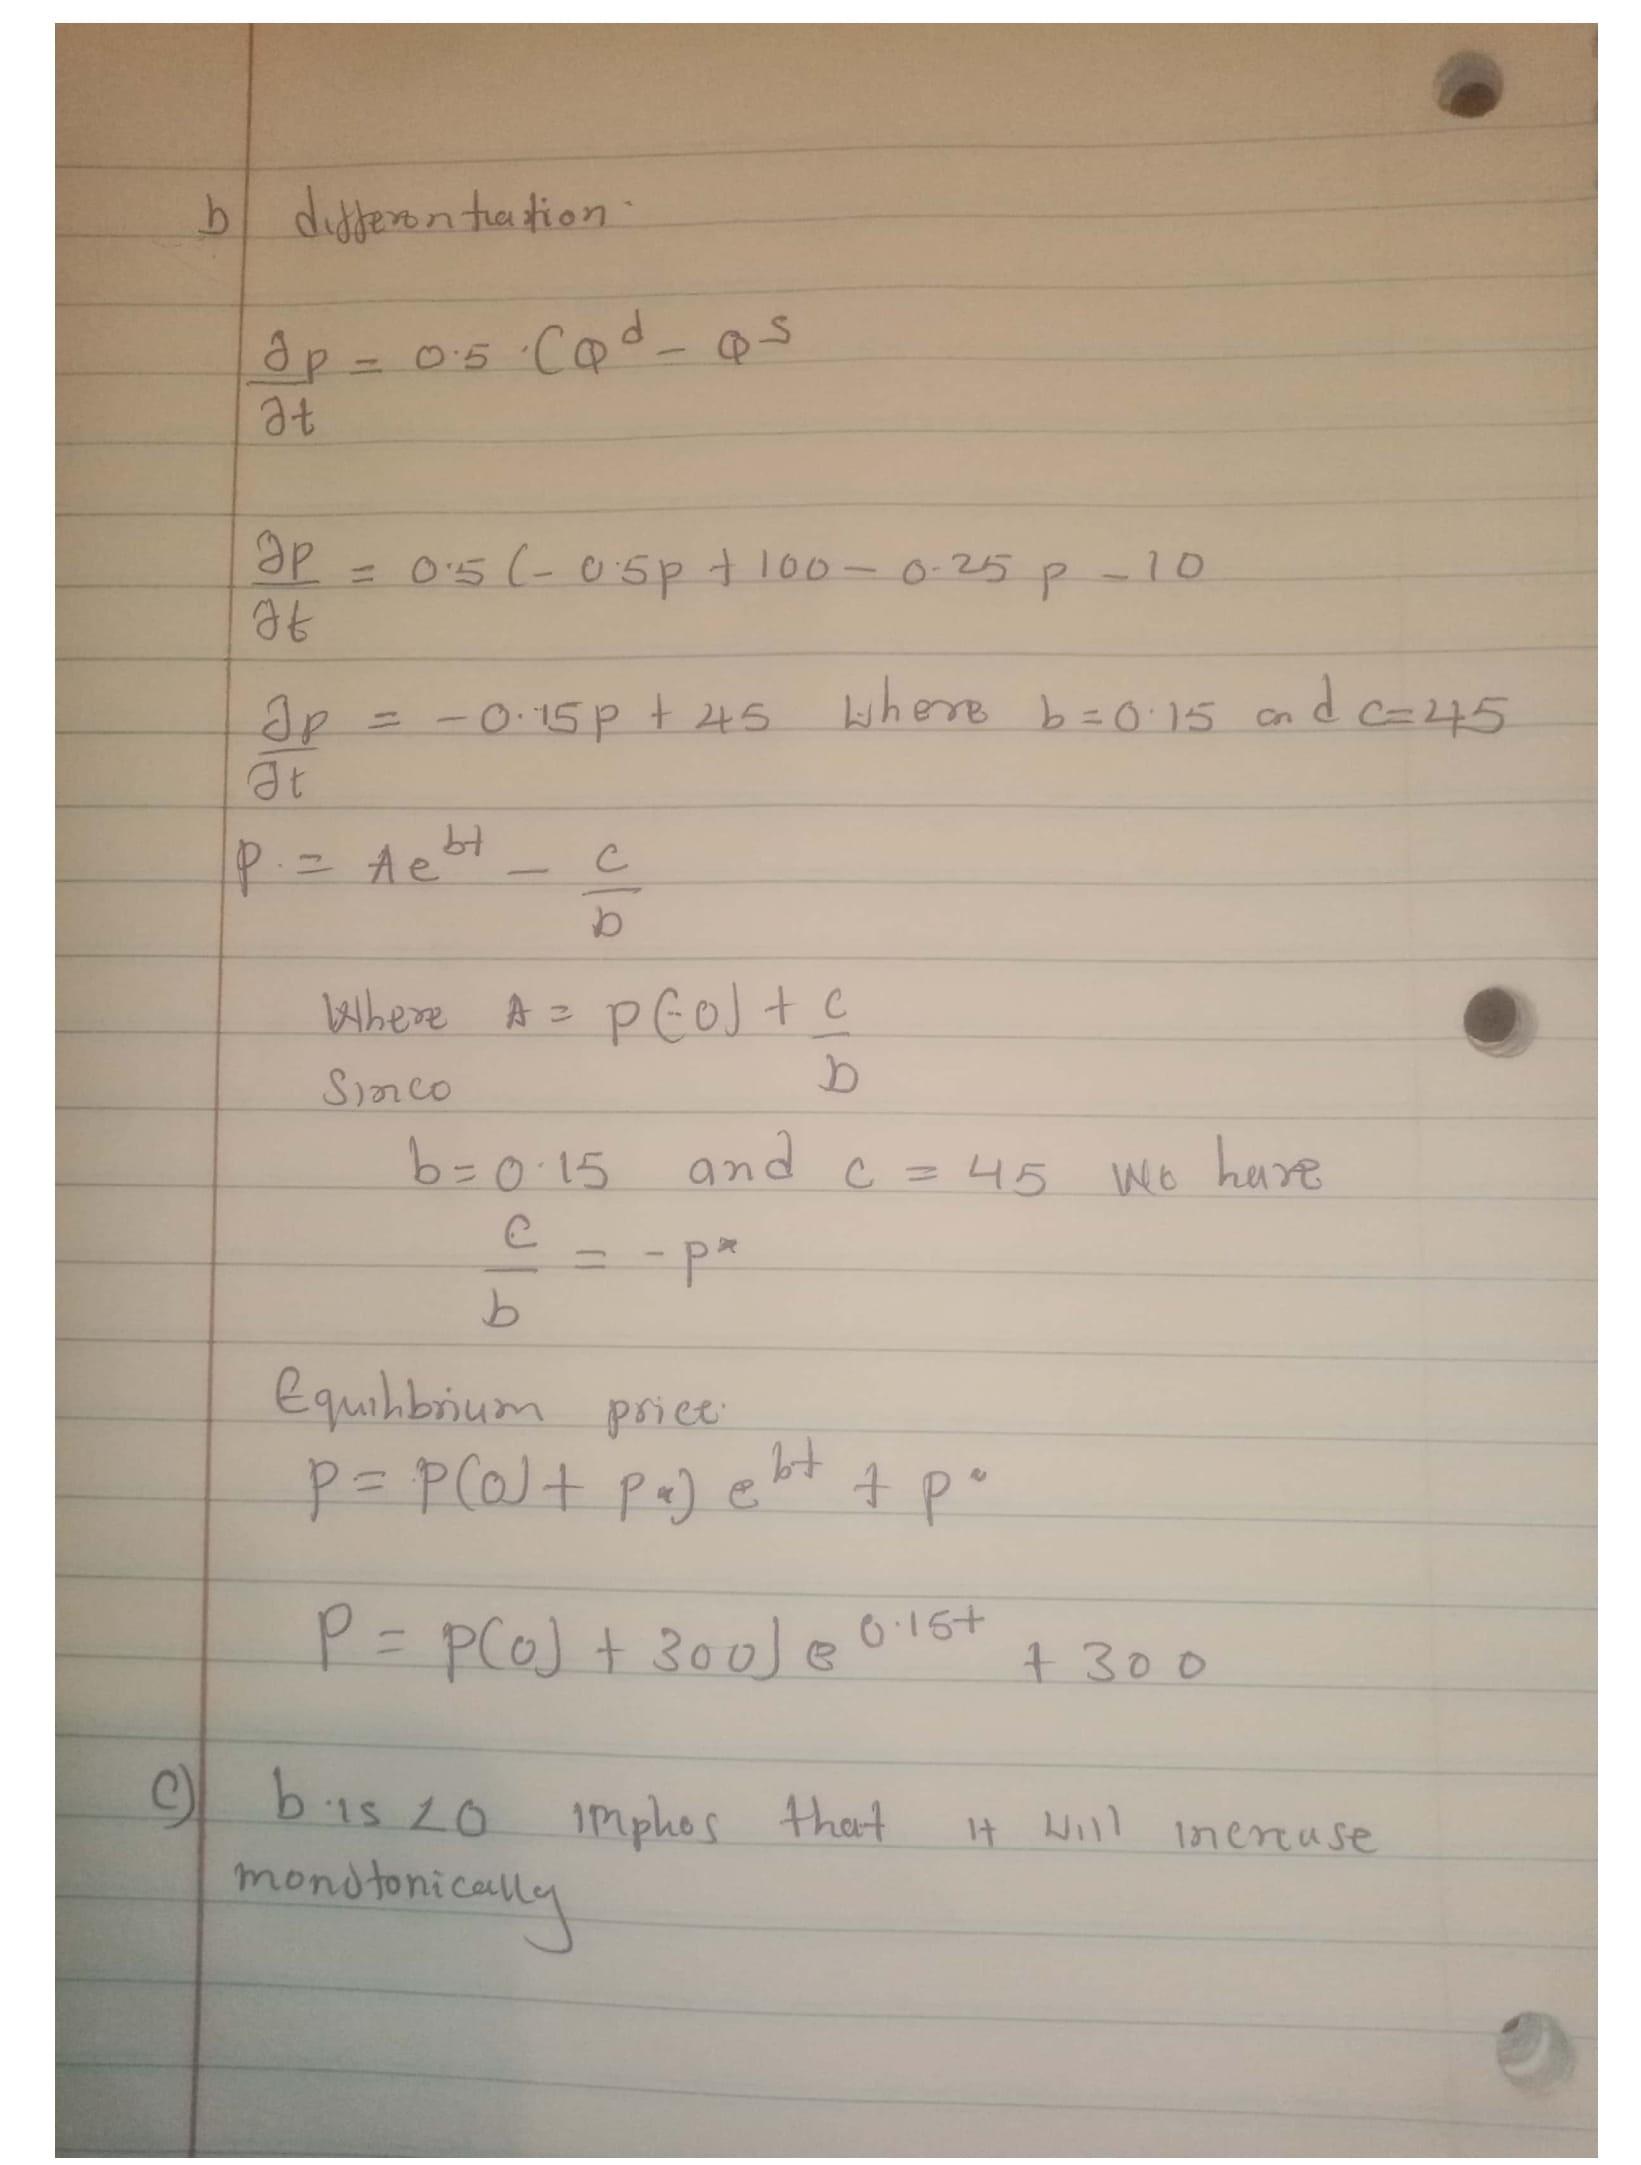 b differentiation.
∂p/∂t = 0.5 (Q^d - Q^s
∂p/∂t = 0.5 (- 0.5p + 100 - 0.25 p - 10
∂p/∂t = -0.15p + 45 where b = 0.15 and c = 45
p = Ae^bt - c/b
Where A = p(-0) + c/b
Since
b = 0.15 and c = 45 we have
c/b = -p*
Equilibrium price.
p = p(0) + p*) e^bt + p*
P = p(0) + 300) e^0.15t + 300
c) b is <0 implies that it will increase
monotonically